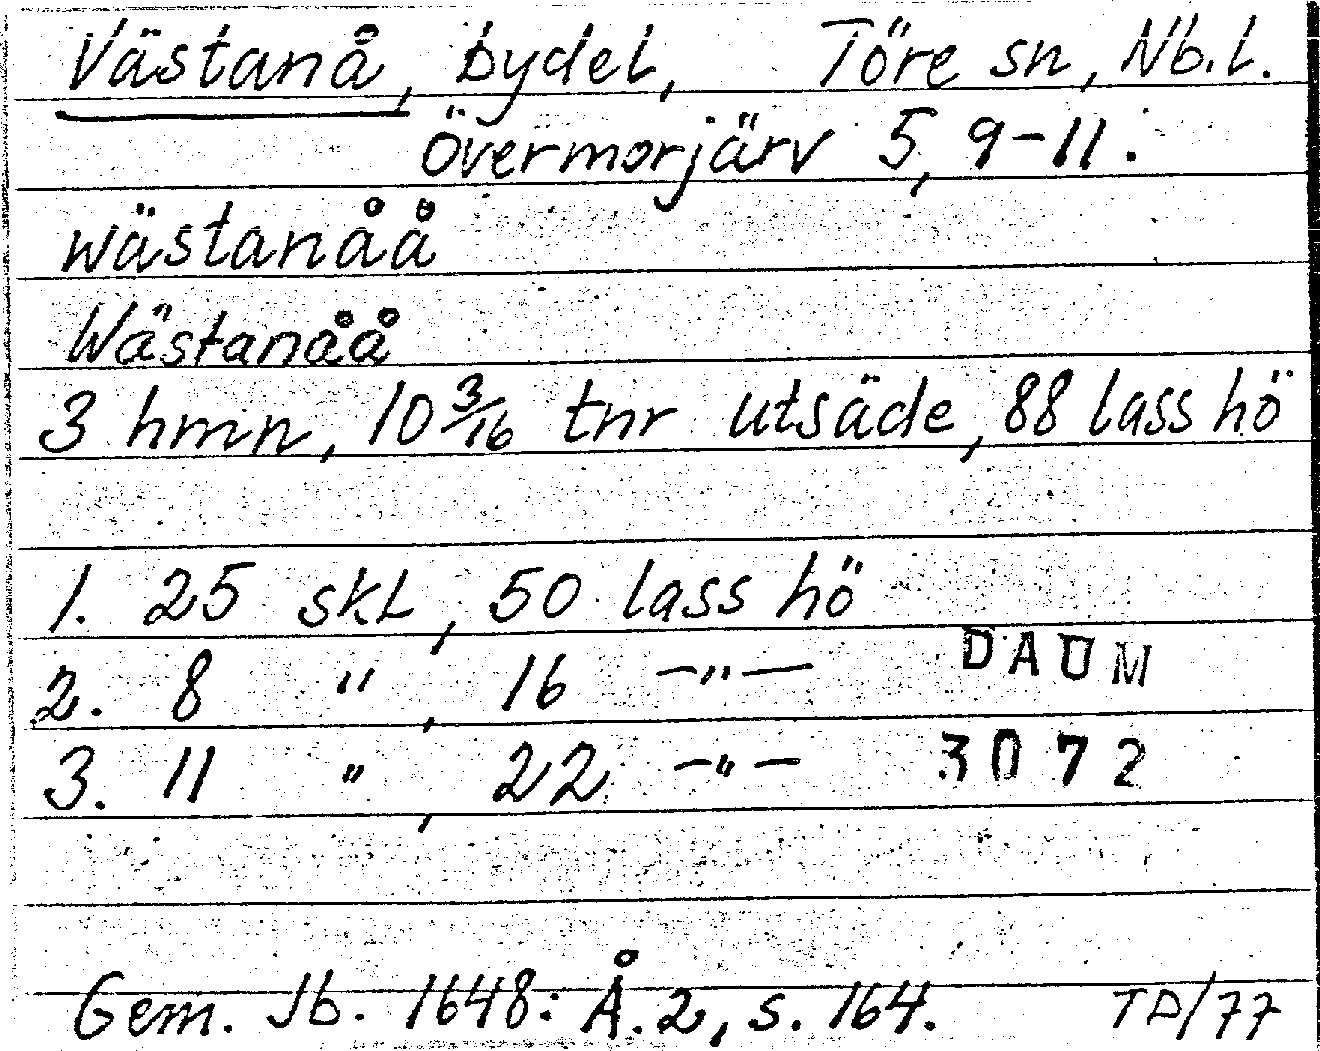 Västanå, bydel, Töre sn, Nb.l.
Övermorjärv 5, 9-11.
wästanåå
Wästanåå
3 hmn, 10 3/16 tnr utsäde, 88 lass hö
1. 25 skl, 50 lass hö
2. 8 " , 16 -"- DAUM
3. 11 " , 22 -"- 3072
Gem. Jb. 1648: Å. 2, s. 164. TD/77